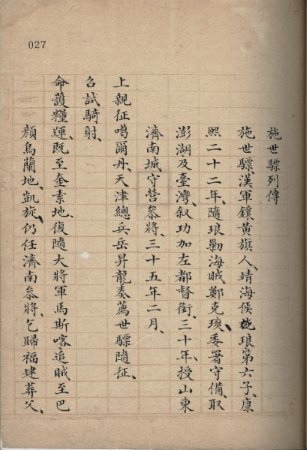 027
施世驃列傳
施世驃、漢軍鑲黃旗人、靖海侯施琅第六子、康
熙二十二年、隨琅勦海賊鄭克塽、委署守備、取
澎湖及臺灣、敘功加左都督銜、三十年、授山東
濟南城守營參將、三十五年二月、
上親征噶爾丹、天津總兵岳昇龍奏薦世驃隨征、
召試騎射、
命護糧運、既至奎素地、復隨大將軍馬斯喀追賊至巴
顏烏蘭地、凱旋、仍任濟南參將、乞歸福建葬父、